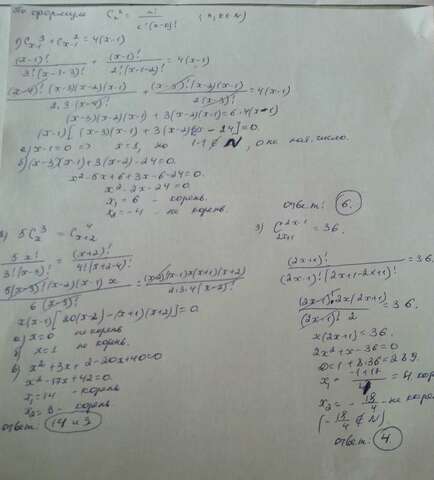 По формуле C_x^2 = n! / (n, k ∈ N)
1) C_{x-1}^3 + C_{x-1}^2 = 4(x-1)
(x-1)! / 3!(x-1-3)! + (x-1)! / 2!(x-1-2)! = 4(x-1)
(x-4)!(x-3)(x-2)(x-1) / 2·3(x-4)! + (x-3)!(x-2)(x-1) / 2(x-3)! = 4(x-1)
(x-3)(x-2)(x-1) + 3(x-2)(x-1) = 6·4(x-1)
(x-1)[(x-3)(x-2) + 3(x-2) - 24] = 0
а) x-1=0 => x=1, но 1-1 ∉ N, 0 не нат. число.
б) (x-3)(x-2) + 3(x-2) - 24 = 0.
x² - 5x + 6 + 3x - 6 - 24 = 0.
x² - 2x - 24 = 0.
x₁ = 6 - корень.
x₂ = -4 - не корень.
ответ: 6.
2) 5C_x^3 = C_{x+2}^4
5x! / 3!(x-3)! = (x+2)! / 4!(x+2-4)!
5(x-3)!(x-2)(x-1)x / 6(x-3)! = (x-2)!(x-1)x(x+1)(x+2) / 2·3·4(x-2)!
x(x-1)[20(x-2) - (x+1)(x+2)] = 0.
а) x=0 не корень
б) x=1 не корень.
в) x² + 3x + 2 - 20x + 40 = 0
x² - 17x + 42 = 0.
x₁ = 14 - корень
x₂ = 3 - корень.
ответ: 14 и 3
3) C_{2x+1}^{2x-1} = 36.
(2x+1)! / (2x-1)!(2x+1-2x+1)! = 36
(2x-1)! 2x(2x+1) / (2x-1)! 2 = 36.
x(2x+1) = 36.
2x² + x - 36 = 0
D = 1 + 8·36 = 289.
x₁ = -1+17 / 4 = 4 кор
x₂ = -18/4 - не кор
(-18/4 ∉ N)
ответ: 4.